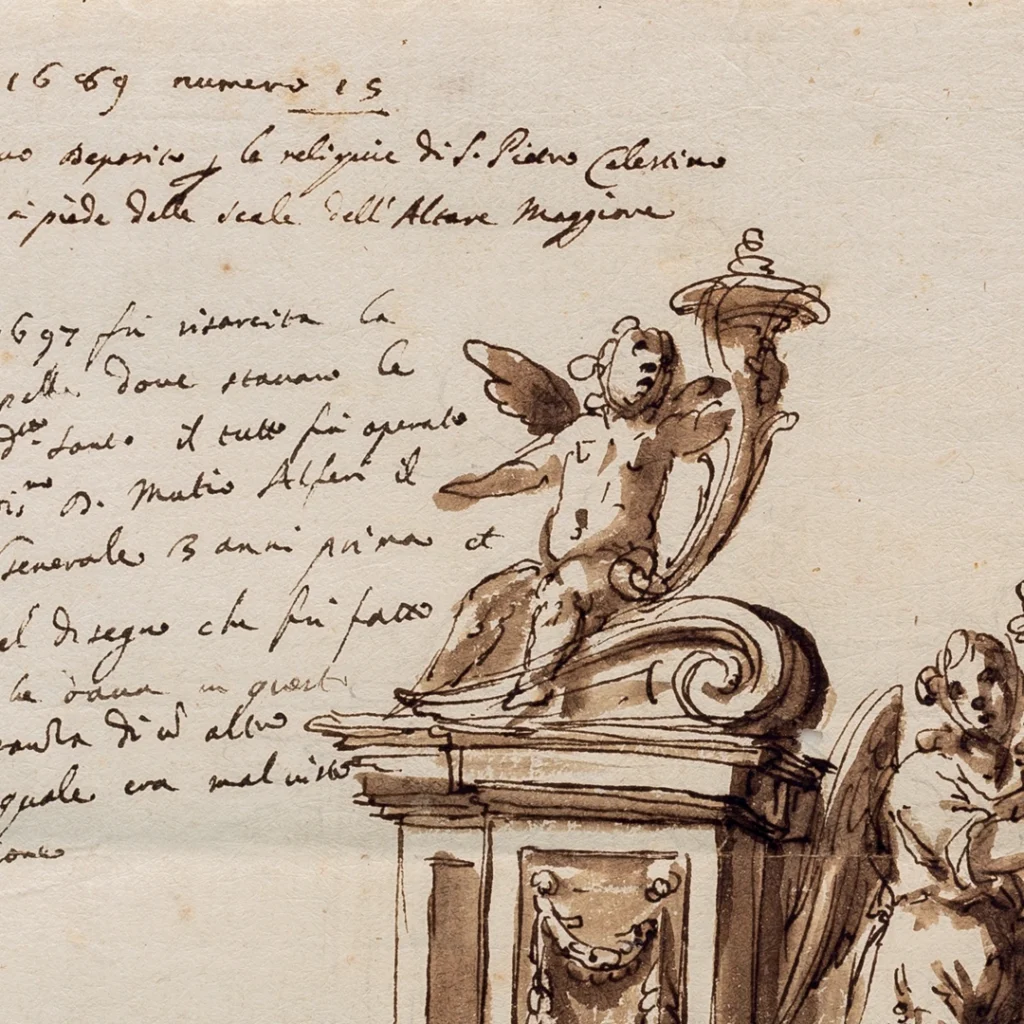 1689 numero 15
Deposito p le reliquie di S. Pietro Celestino
piede delle scale dell'Altare Maggiore
1697 fu risarcita la
dove stavano le
dtto Santo il tutto fu operato
D. Mutio Alferi il
Generale 3 anni prima et
disegno che fu fatto
in quest
di altro
quale era mal visto